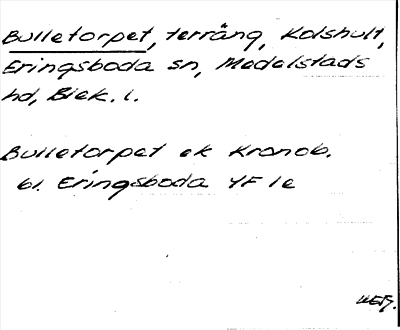 Bulletorpet, terräng, Kolshult,
Eringsboda sn, Medelstads
hd, Blek. l.
Bulletorpet ek Kronob.
bl. Eringsboda 4F 1e